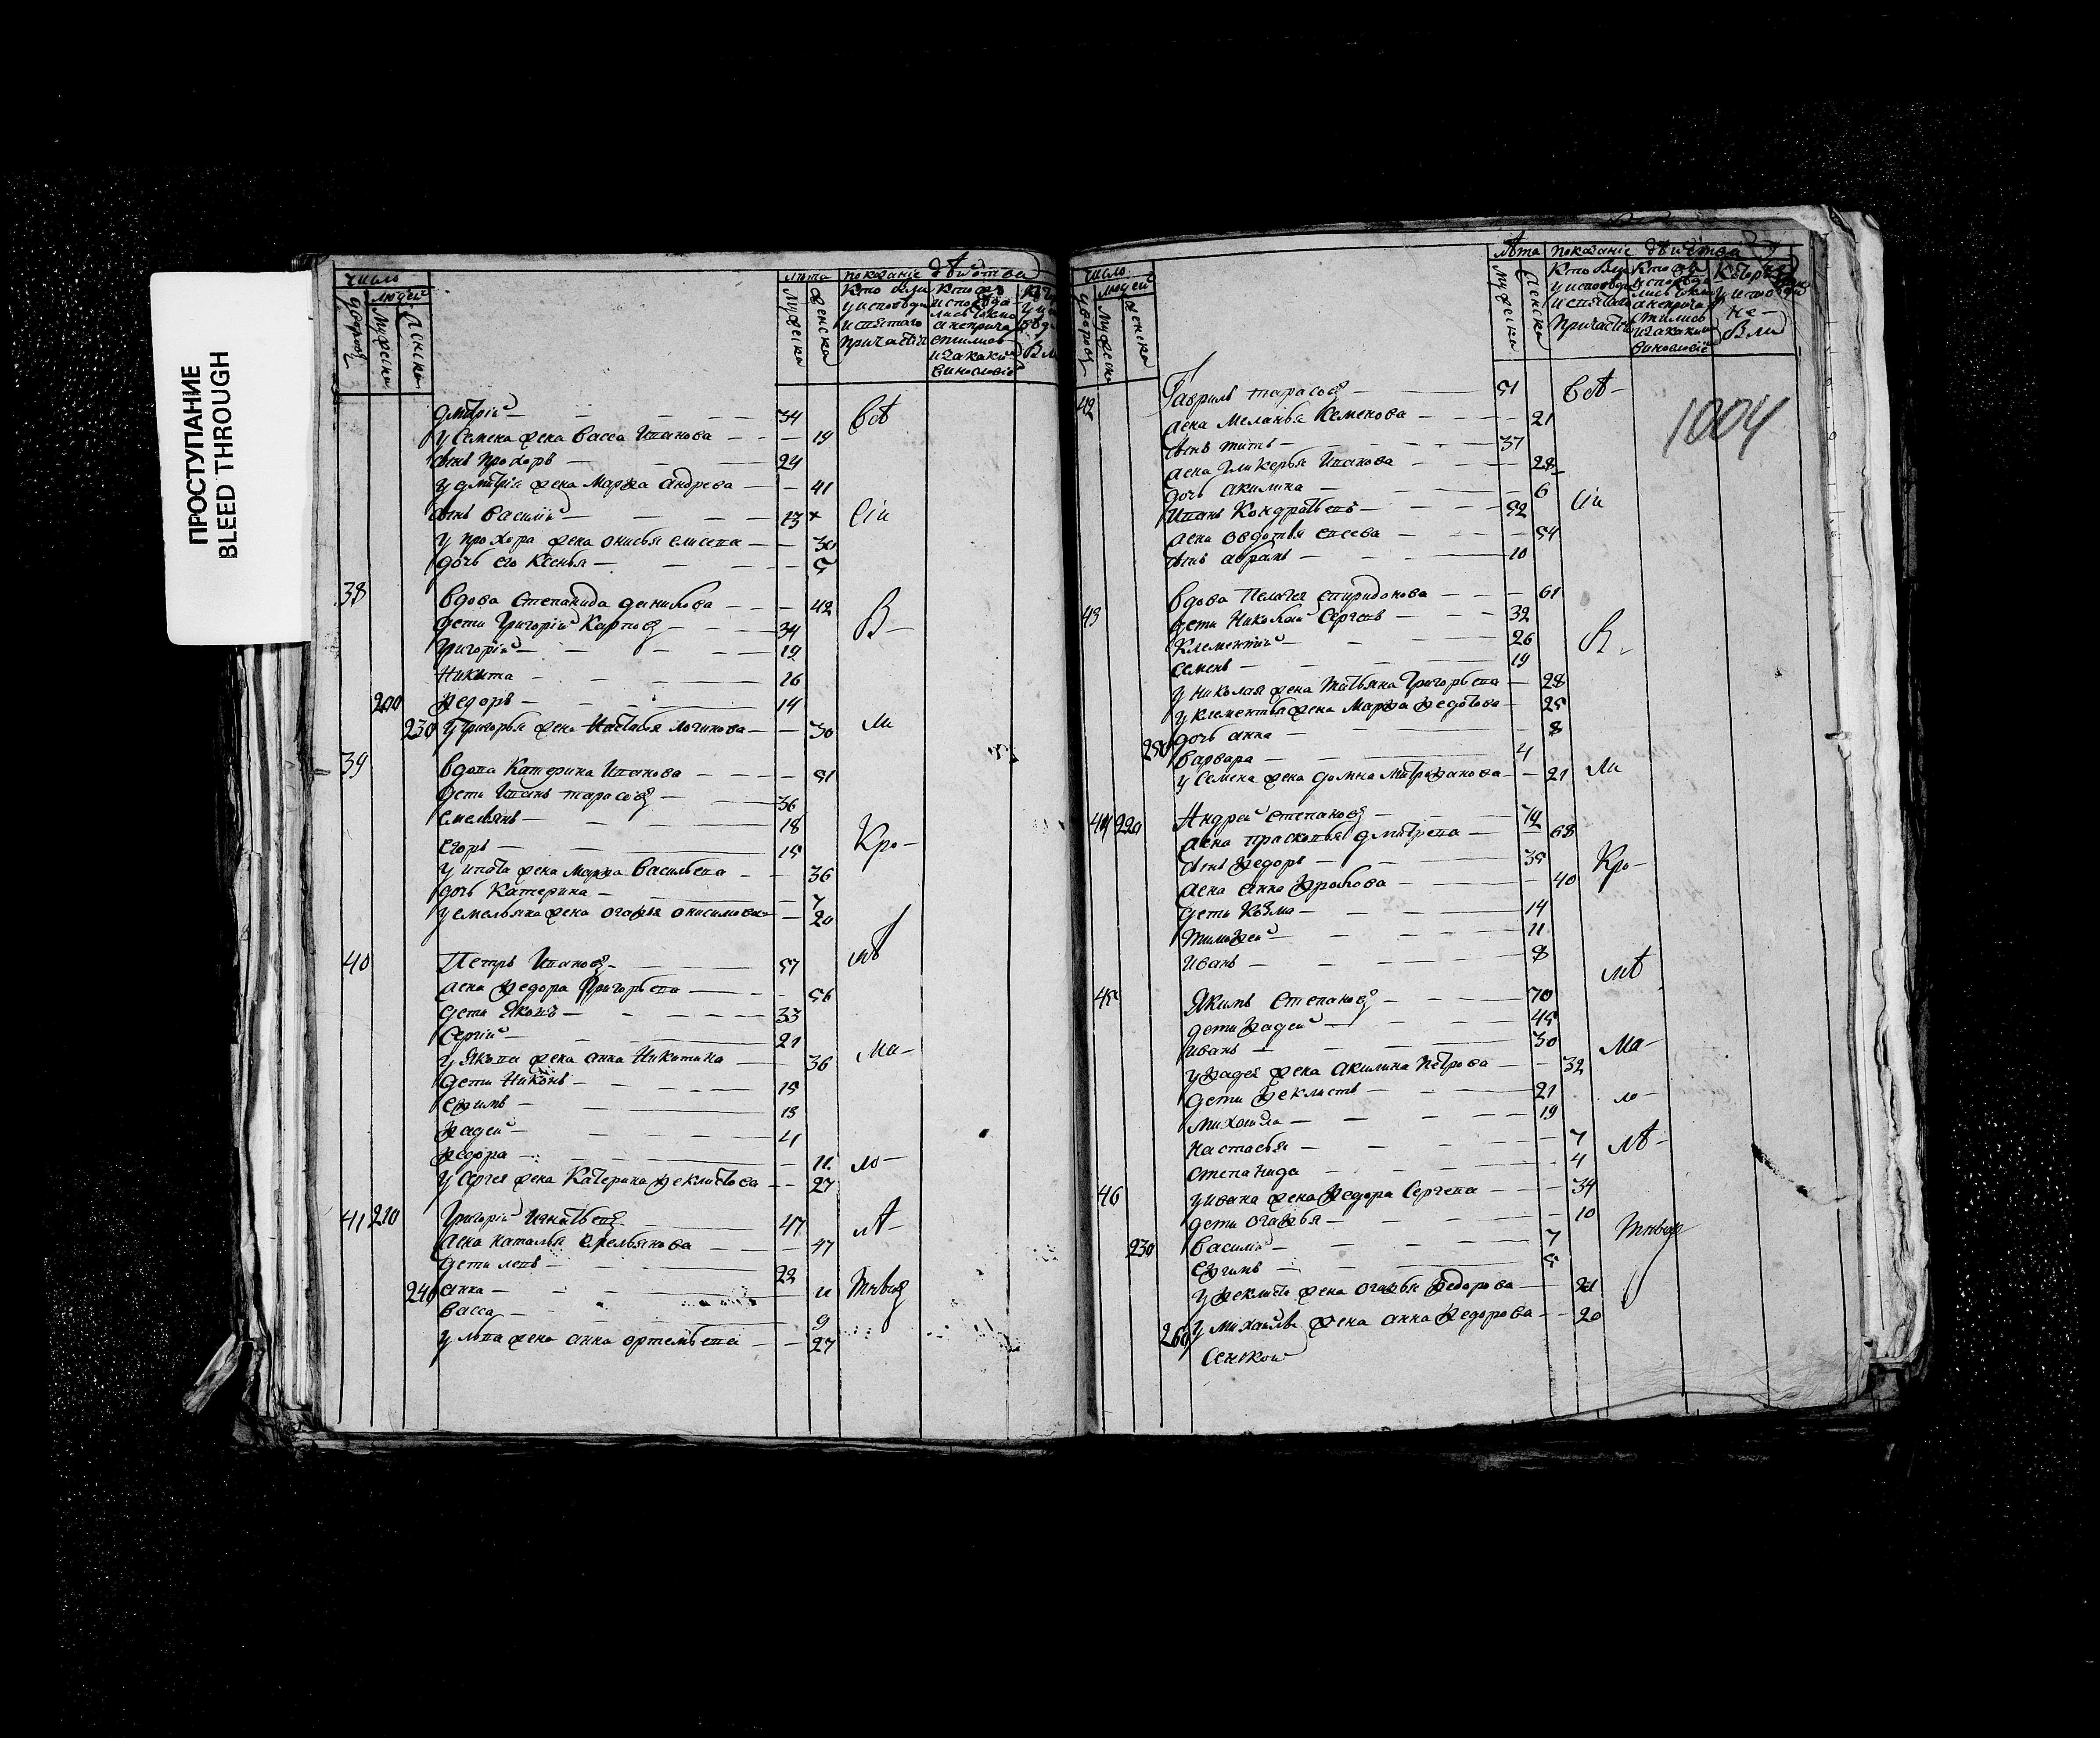 ПРОСТУПАНИЕ
BLEED THROUGH
число
людей
лета показание действа
дмитрій — 34
у семена жена васса иванова — 19
сынъ прохоръ — 24
у дмитрія жена марфа андреева — 41
сынъ василій — 13
у прохора жена онисья елисеева — 30
дочь его ксенья — 5
всѣ
сіи
38 вдова степанида данилова — 42
дети григорій карповъ — 34
григорій — 19
никита — 16
200 федоръ — 14
230 у григорья жена настасья логинова — 30
в
ли
39 вдова катерина иванова — 51
дети иванъ тарасовъ — 36
емельянъ — 18
егоръ — 15
у ивана жена марфа васильева — 36
дочь катерина — 7
у емельяна жена огафья онисимова — 20
кро
40 петръ ивановъ — 57
жена федора григорьева — 56
дети яковъ — 33
сергій — 21
у якова жена анна никитина — 36
дети никонъ — 15
ефимъ — 13
фадей — 4
федора — 11
у сергея жена катерина феклистова — 27
мѣ
ма
ло
41 210 григорій игнатьевъ — 47
жена наталья емельянова — 47
дети левъ — 22
240 анна — 11
васса — 9
у льва жена анна артемьева — 27
лѣ
тныхъ
число
людей
лѣта показаніе дѣйства
1004
42 гаврилъ тарасовъ — 51
жена меланья семенова — 21
сынъ титъ — 37
жена гликерья иванова — 28
дочь акилина — 6
иванъ кондратьевъ — 52
жена овдотья евсеева — 54
сынъ абрамъ — 10
всѣ
сіи
43 вдова пелагея спиридонова — 61
дети николай сергеевъ — 32
клементій — 26
семенъ — 19
у николая жена татьяна григорьева — 28
у клементья жена марфа федотова — 25
дочь анна — 8
250 варвара — 4
у семена жена домна митрофанова — 21
в
ли
44 220 андрей степановъ — 72
жена прасковья дмитрева — 68
сынъ федоръ — 35
жена анна фролова — 40
дети козма — 14
тимофей — 11
иванъ — 8
кро
мѣ
45 якимъ степановъ — 70
дети фадей — 45
иванъ — 30
у фадея жена акилина петрова — 32
дети феклистъ — 21
михаила — 19
настасья — 7
степанида — 4
ма
ло
лѣ
46 у ивана жена федора сергеева — 34
дети огафья — 10
230 василій — 7
ефимъ — 5
у феклиста жена огафья федорова — 21
260 у михаилы жена анна федорова — 20
тныхъ